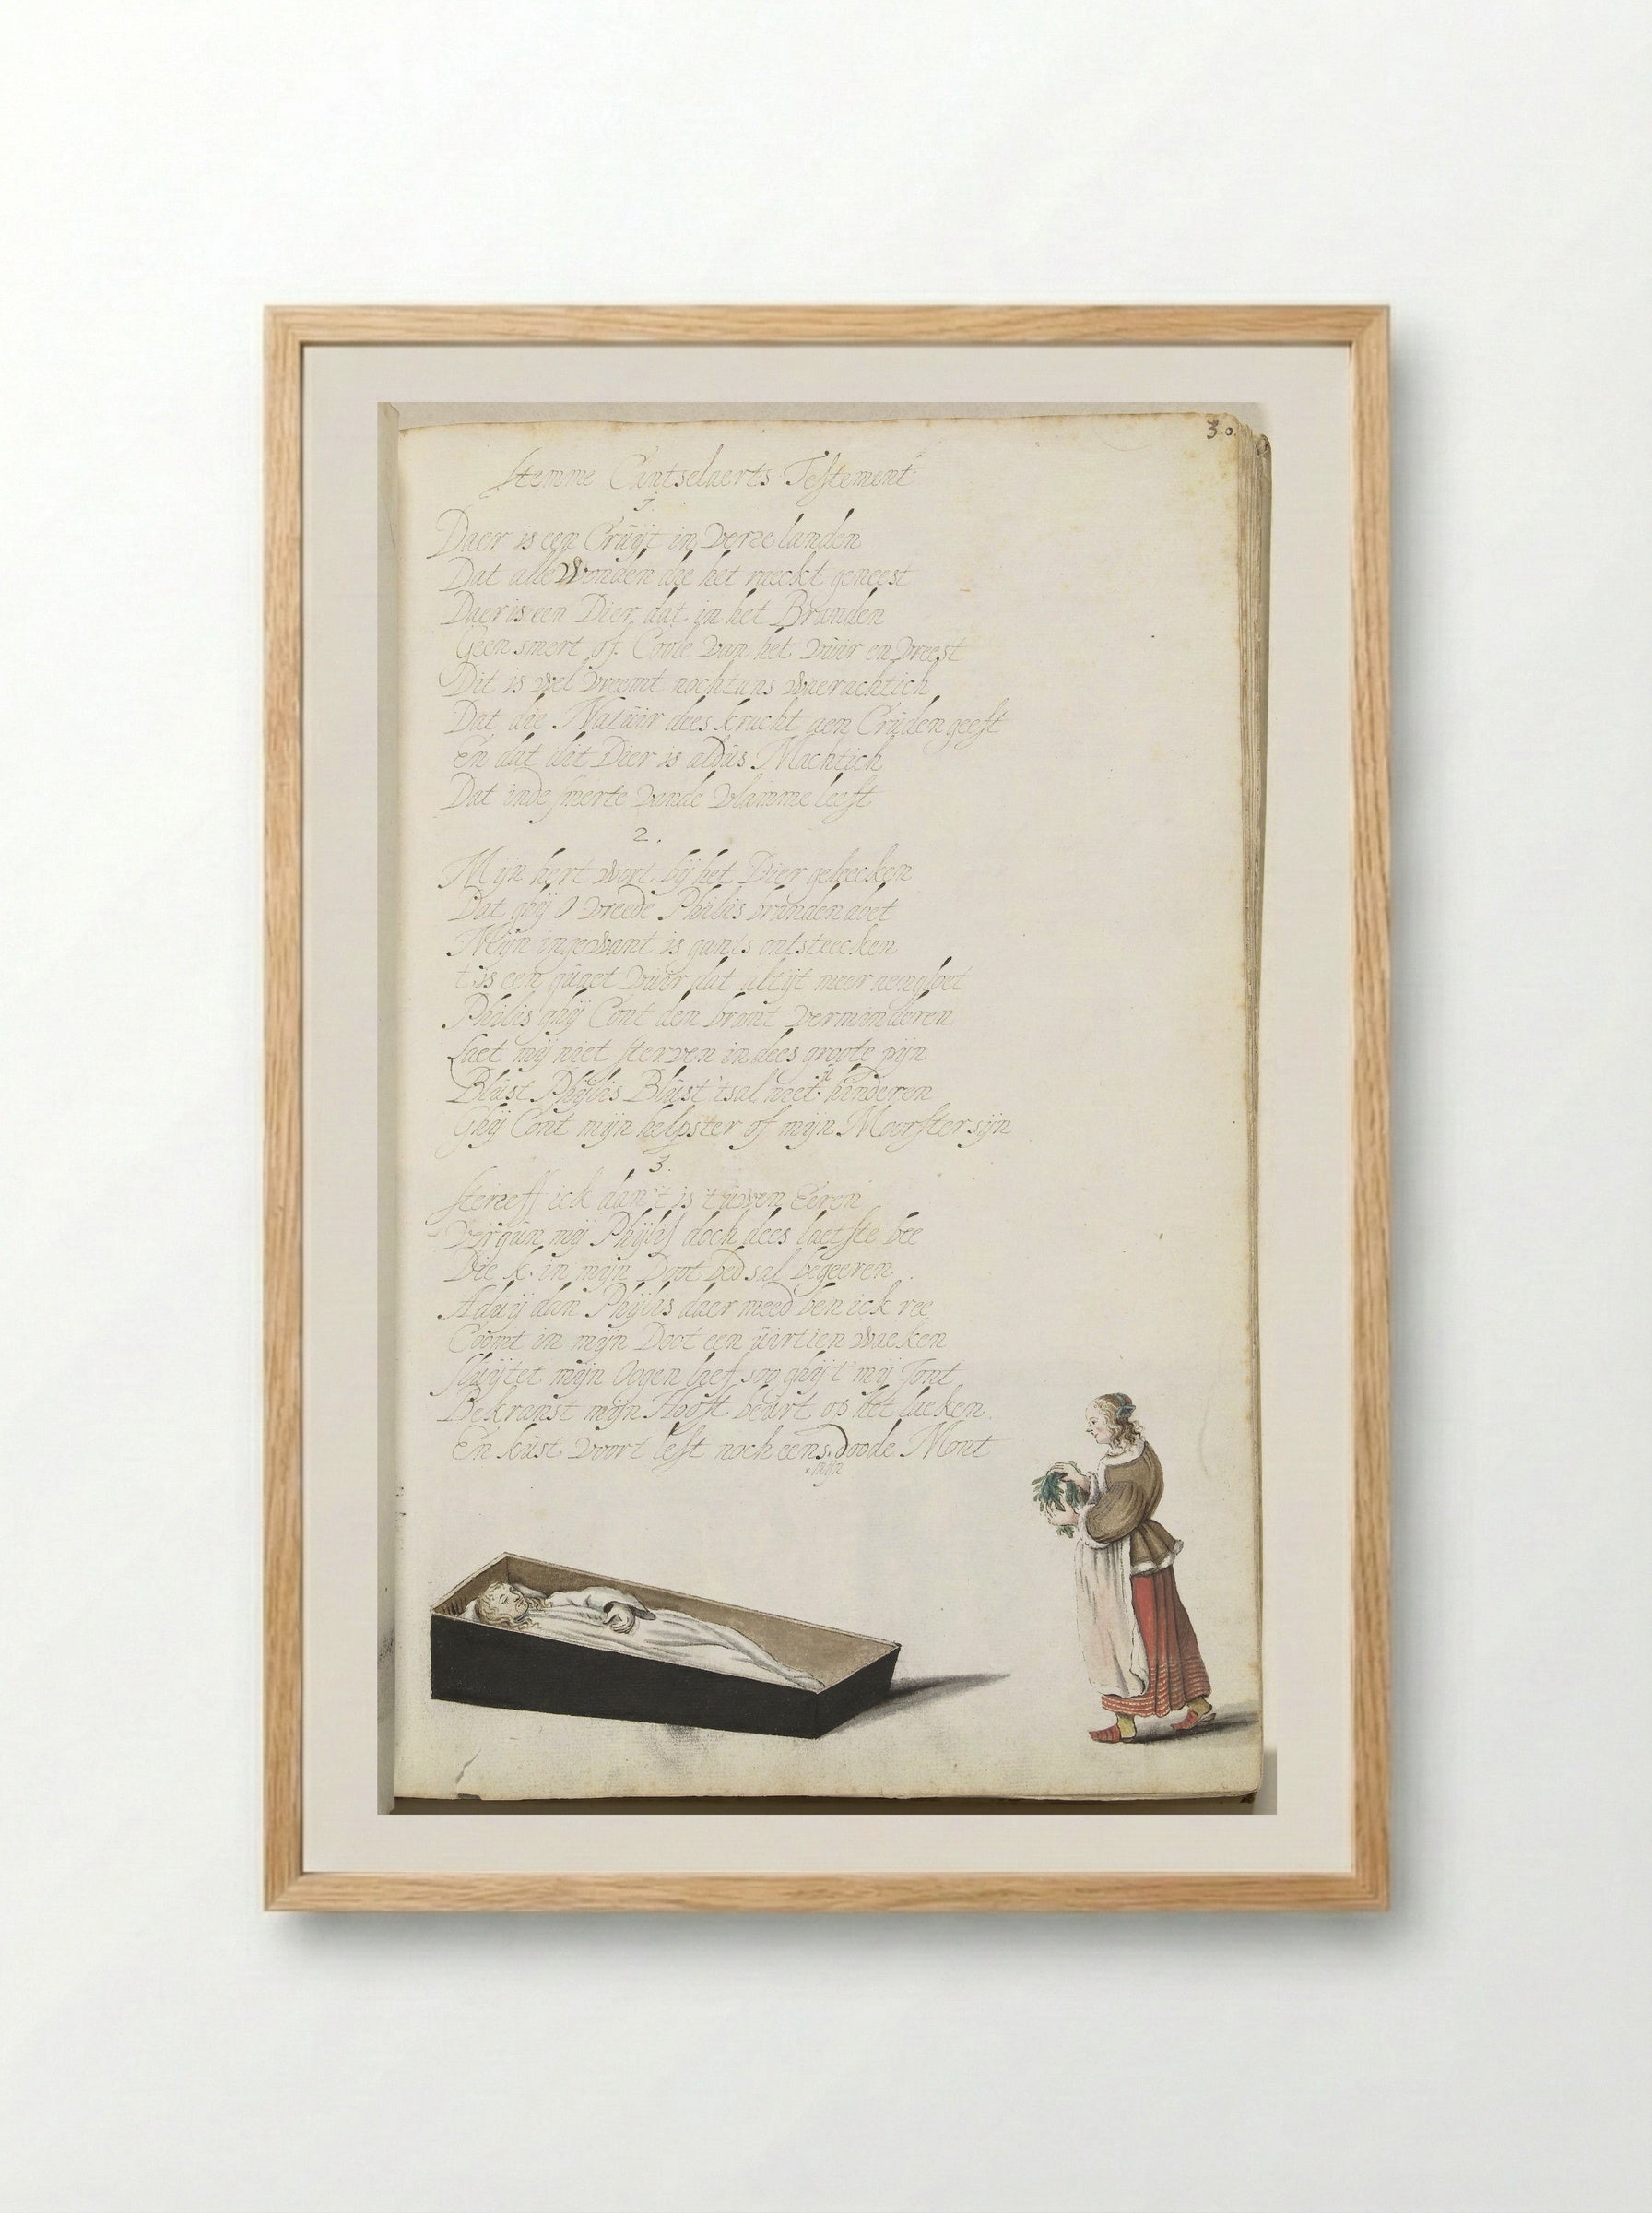 30.
Stemme Cantselaerts Testement
1.
Daer is een Cruijt in verre landen
Dat alle Wonden die het raeckt geneest
Daer is een Dier dat in het Branden
Geen smert of Coule van het vuür en vreest
Dit is wel vreemt nochtans waerachtich
Dat die Natüir dees kracht aen Crüden geeft
En dat dit Dier is aldüs Machtich
Dat inde smerte vande vlamme leeft
2.
Mijn hert wort bij het Dier geleecken
Dat ghij O vreede Philis branden doet
Mijn ingewant is gants ontsteecken
t is een qüaet vüür dat altijt meer aengloet
Philis ghij Cont den brant verminderen
Laet mij niet sterven in dees groote pijn
Blüst Phijlis Blüst tsal niet ü hinderen
Ghij Cont mijn helpster of mijn Moorster sijn
3.
Sterreff ick dan 't is t üwen Eeren
Vergün mij Phijlis doch dees laetste bee
Die k in mijn Doot bed sal begeeren
Adüij dan Phijlis daer meed ben ick ree
Coomt in mijn Doot een üirtien waeken
Slüijtet mijn Oogen lief soo ghij't mij Jont
Bekranst mijn Hooft beürt op het laeken
En küst voort lest noch eens doode Mont
mijn